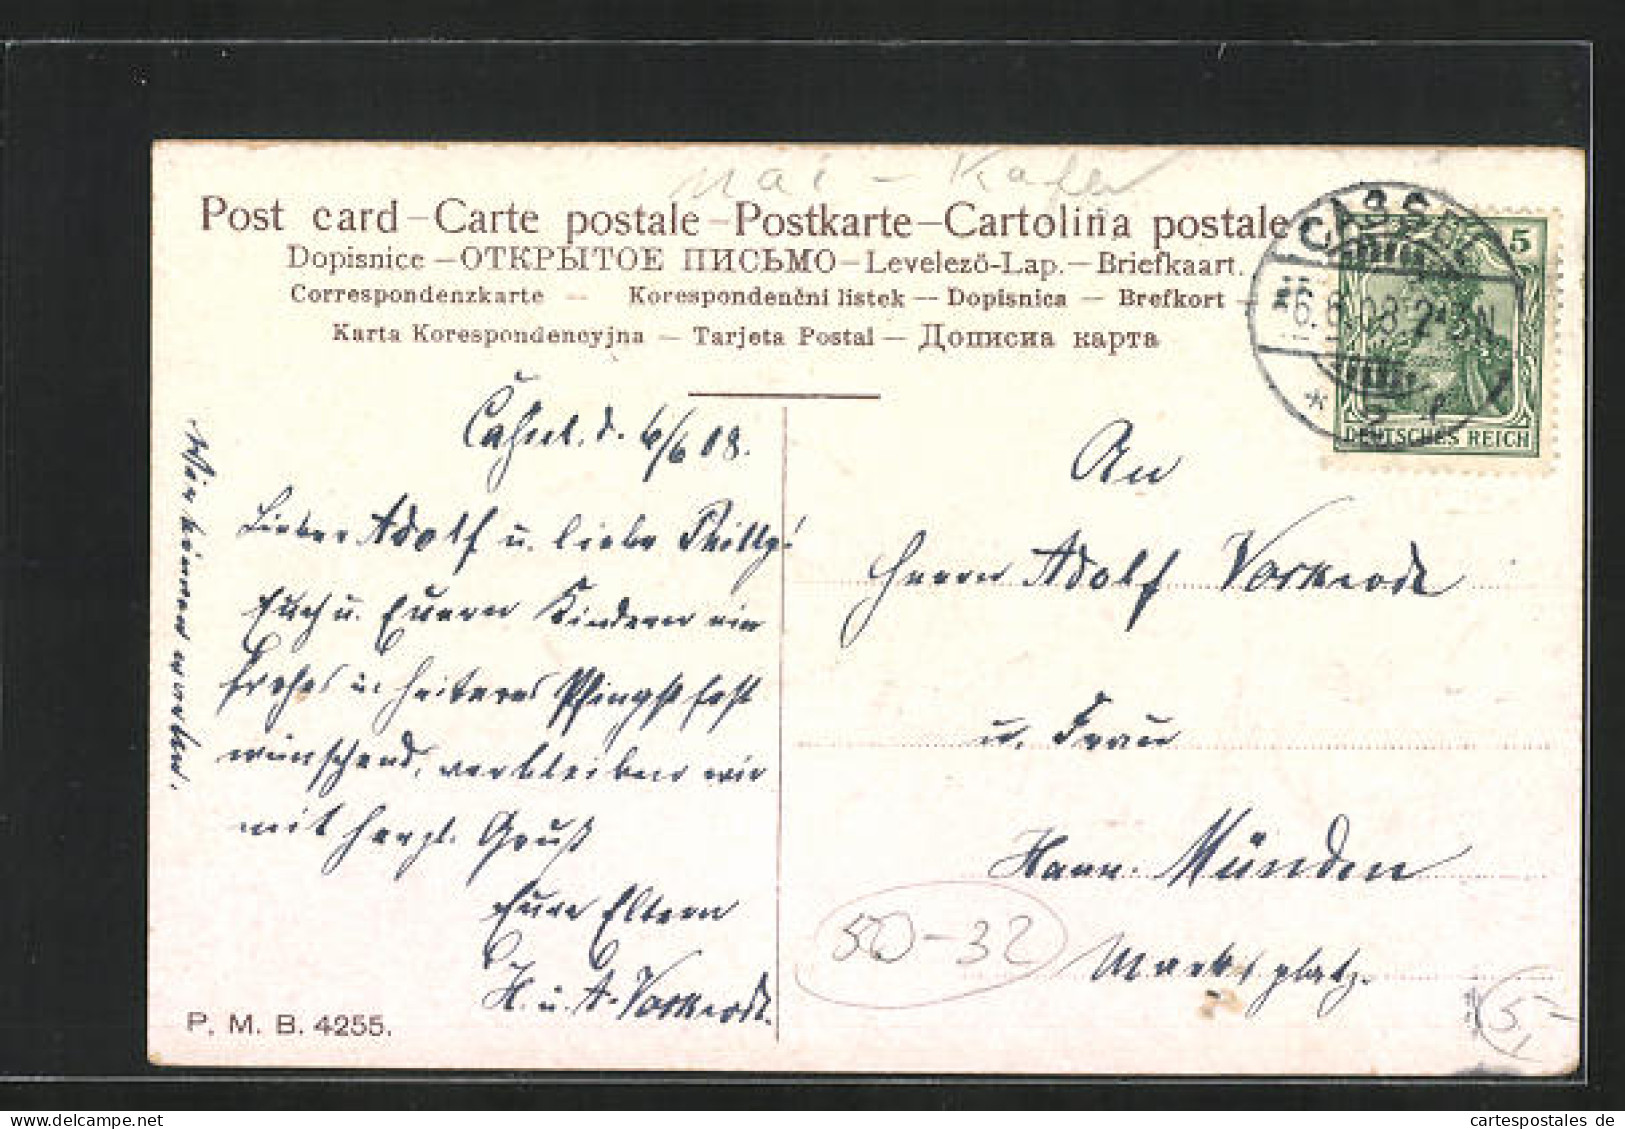 Mai-Kafer
Post card – Carte postale – Postkarte – Cartolina postale
Dopisnice – ОТКРЫТОЕ ПИСЬМО – Levelező-Lap. – Briefkaart.
Correspondenzkarte – Korespondenční listek – Dopisnica – Brefkort –
Karta Korespondencyjna – Tarjeta Postal – Дописна карта
CASSEL
6.6.08. 2-3N
* 2
5
DEUTSCHES REICH
Caßel. d. 6/6 08.
Lieber Adolf u. liebe Philly!
Euch u. Euern Kindern ein
frohes u. heiteres Pfingstfest
wünschend, verbleiben wir
mit herzl. Gruß
Eure Eltern
H. u. A. Vorkrodt.
Wir können warten.
An
Herrn Adolf Vorkrodt
u. Frau
Hann. Münden
Marktplatz.
50-32
5,-
P. M. B. 4255.
Copyright © delcampe.net
cartespostales de